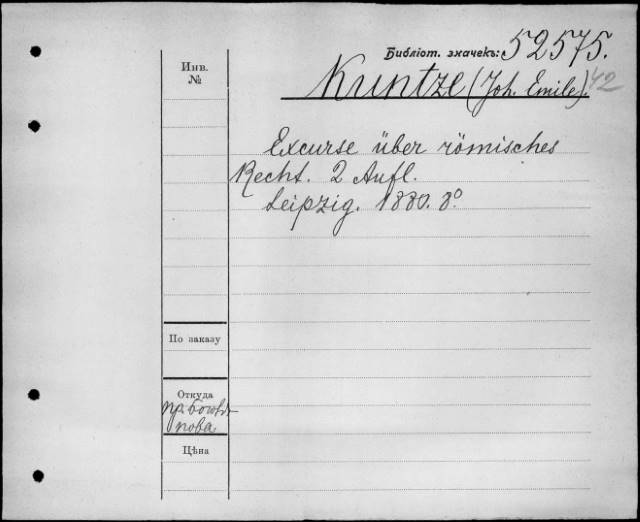 Библіот. значекъ: 52575.
Инв.
№
Kuntze (Joh. Emile). 42
Excurse über römisches
Recht. 2 Aufl.
Leipzig. 1880. 8º
По заказу
Откуда
пр.
пова
Цѣна